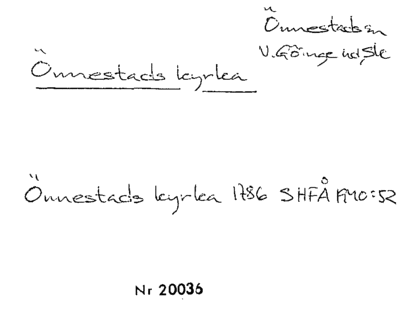 Önnestads sn
V. Göinge hd, Sk
Önnestads kyrka
Önnestads kyrka 1786 SHFÅ 1940:52
Nr 20036